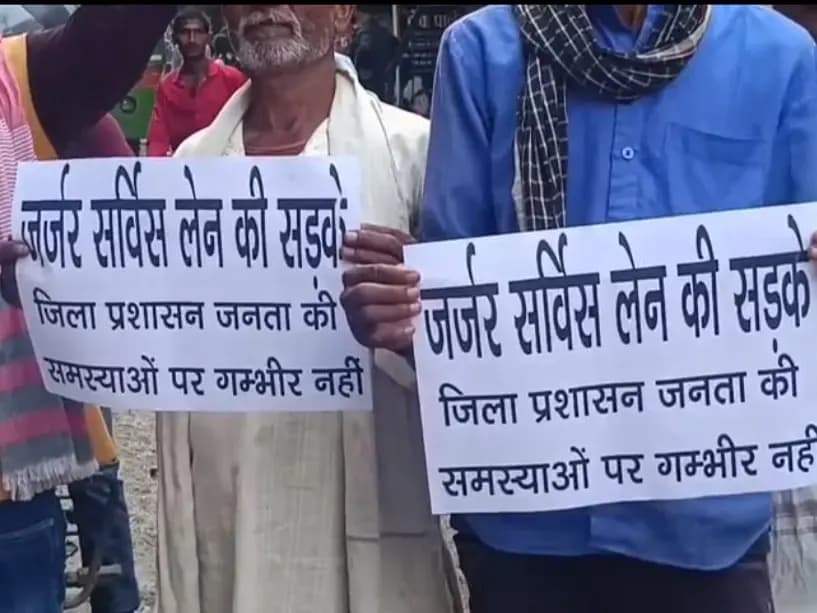 जर्जर सर्विस लेन की सड़के
जिला प्रशासन जनता की
समस्याओं पर गम्भीर नहीं
जर्जर सर्विस लेन की सड़के
जिला प्रशासन जनता की
समस्याओं पर गम्भीर नहीं